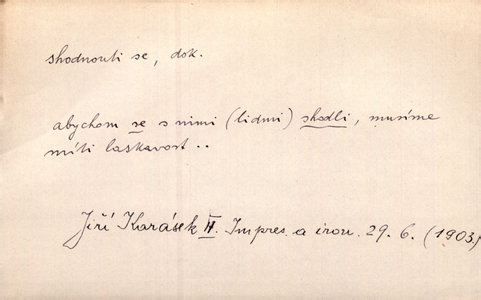 shodnouti se, dok.
abychom se s nimi (lidmi) shodli, musíme
míti laskavost..
Jiří Karásek II. Impres. a iron. 29. 6. (1903)